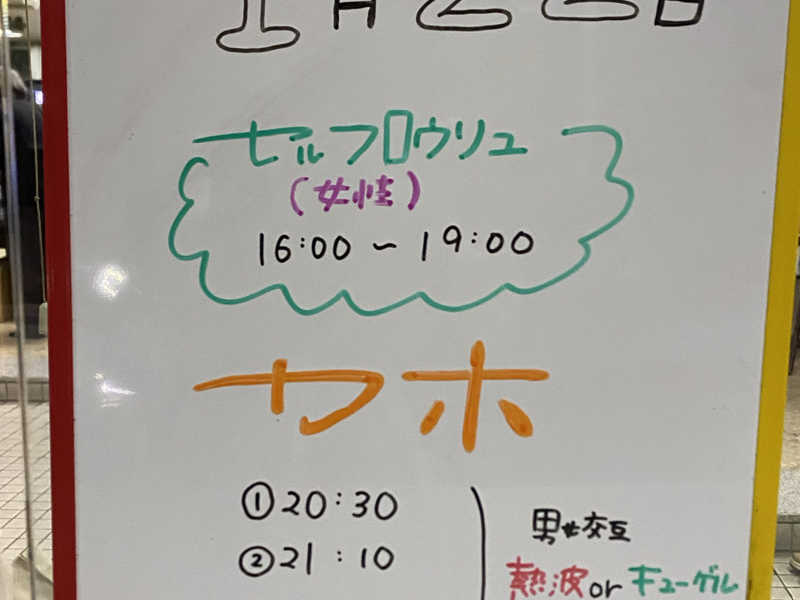 セルフロウリュ
(女性)
16:00 ~ 19:00
カホ
①20:30
②21:10
男女交互
熱波orキューゲル